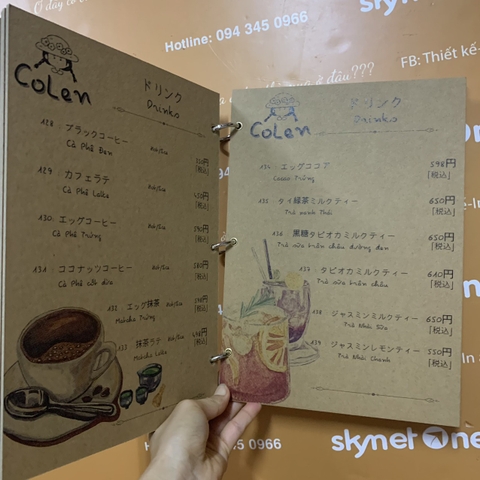 Hotline: 094 345 0966
skynet
FB: Thiết kế
ở đâu???
Colen
ドリンク
Drinks
128 ブラックコーヒー
Cà Phê Đen
[税込]
129 カフェラテ
Cà Phê Latte
450円
[税込]
130. エッグコーヒー
Cà Phê Trứng
[税込]
131. ココナッツコーヒー
Cà Phê cốt dừa
580円
[税込]
132. エッグ抹茶
Matcha Trứng
[税込]
133 抹茶ラテ
Matcha Latte
[税込]
Colen
ドリンク
Drinks
134. エッグココア
Cacao Trứng
598円
[税込]
135. タイ緑茶ミルクティー
Trà xanh Thái
650円
[税込]
136. 黒糖タピオカミルクティー
Trà sữa trân châu đường đen
650円
[税込]
137. タピオカミルクティー
Trà sữa trân châu
610円
[税込]
138 ジャスミンミルクティー
Trà Nhài Sữa
650円
[税込]
139. ジャスミンレモンティー
Trà Nhài Chanh
550円
[税込]
345 0966
skynet one